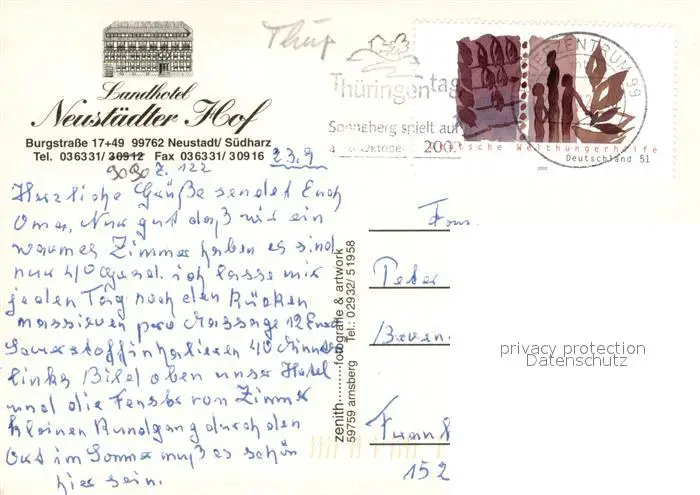 Thür
Landhotel
Neustädter Hof
Burgstraße 17+49 99762 Neustadt/ Südharz
Tel. 036331/ 30912 Fax 036331/ 30916
9090 Z. 122
23.9
Herzliche Grüße sendet Euch
Oma, Nur gut daß wir ein
warmes Zimmer haben es sind
nur 40 Grad. ich lasse mir
jeden Tag noch den Rücken
massieren pro Massage 12 Euro
Sauerstoff inhalieren 40 Minuten
links Bild oben unser Hotel
und die Fenster vom Zimmer
kleinen Rundgang durch den
Ort im Sommer muß es schön
hier sein.
zenith..........fotografie & artwork
59759 arnsberg Tel.: 02932/ 51958
Thüringentag
Sonneberg spielt auf
Oktober 2003
BRIEFZENTRUM 99
Deutsche Welthungerhilfe
Deutschland 51
2002
Fam.
Peter
152
privacy protection
Datenschutz